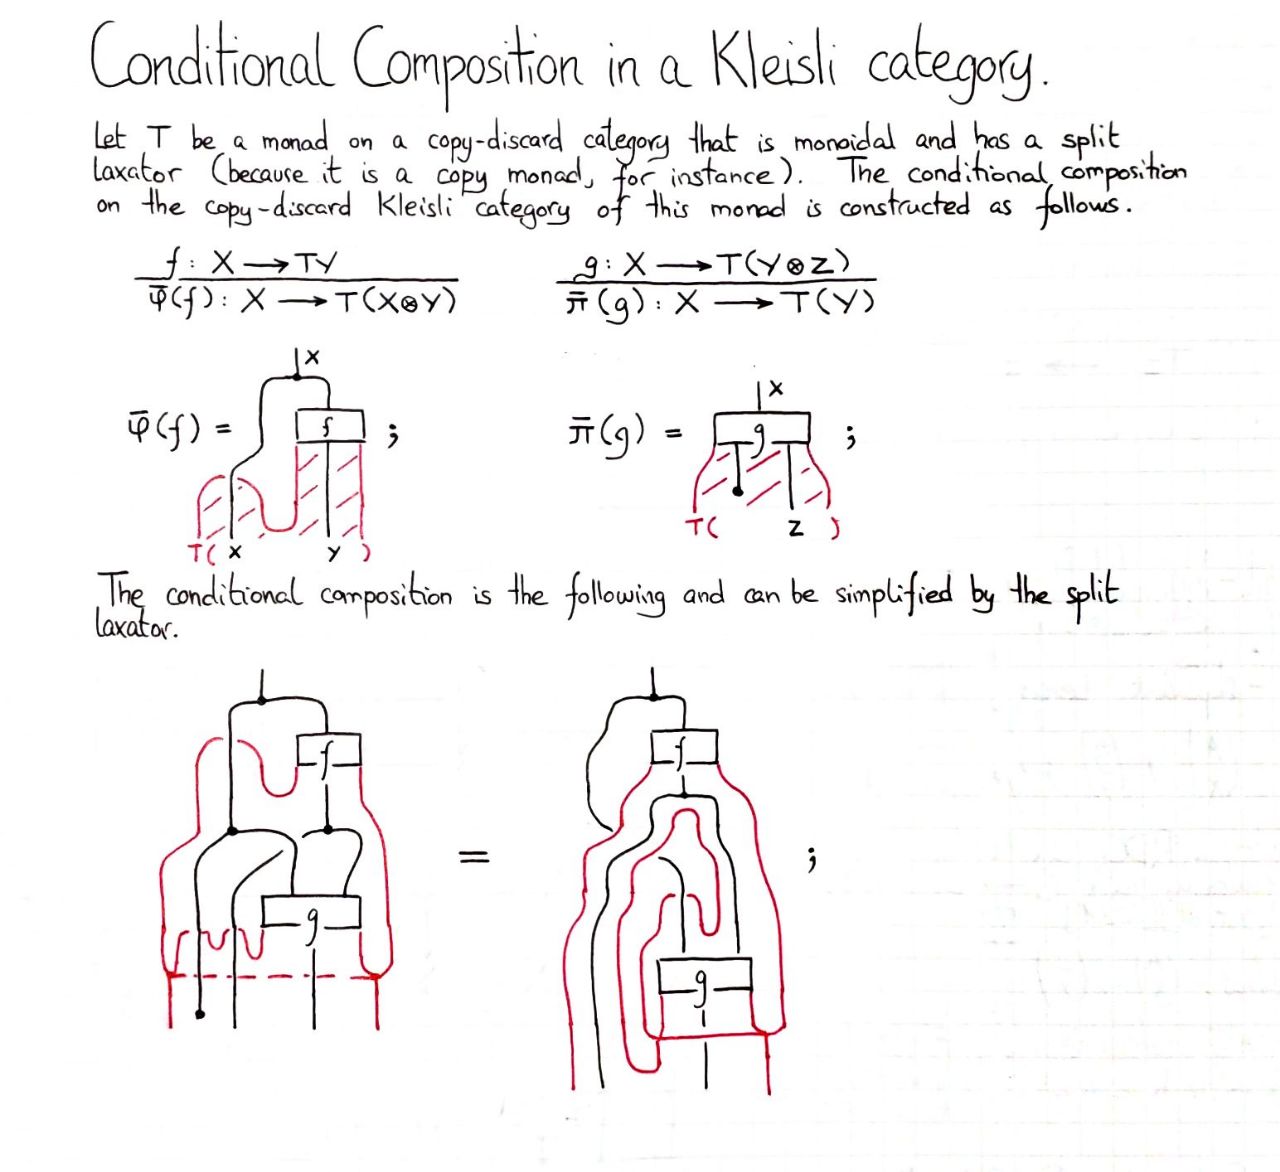 Conditional Composition in a Kleisli category.
Let T be a monad on a copy-discard category that is monoidal and has a split
laxator (because it is a copy monad, for instance). The conditional composition
on the copy-discard Kleisli category of this monad is constructed as follows.
f : X ⟶ TY
φ̄(f) : X ⟶ T(X⊗Y)
g : X ⟶ T(Y⊗Z)
π̄(g) : X ⟶ T(Y)
X
φ̄(f) = f ;
T( X Y )
X
π̄(g) = g ;
T( Z )
The conditional composition is the following and can be simplified by the split
laxator.
f
g
=
f
g
;